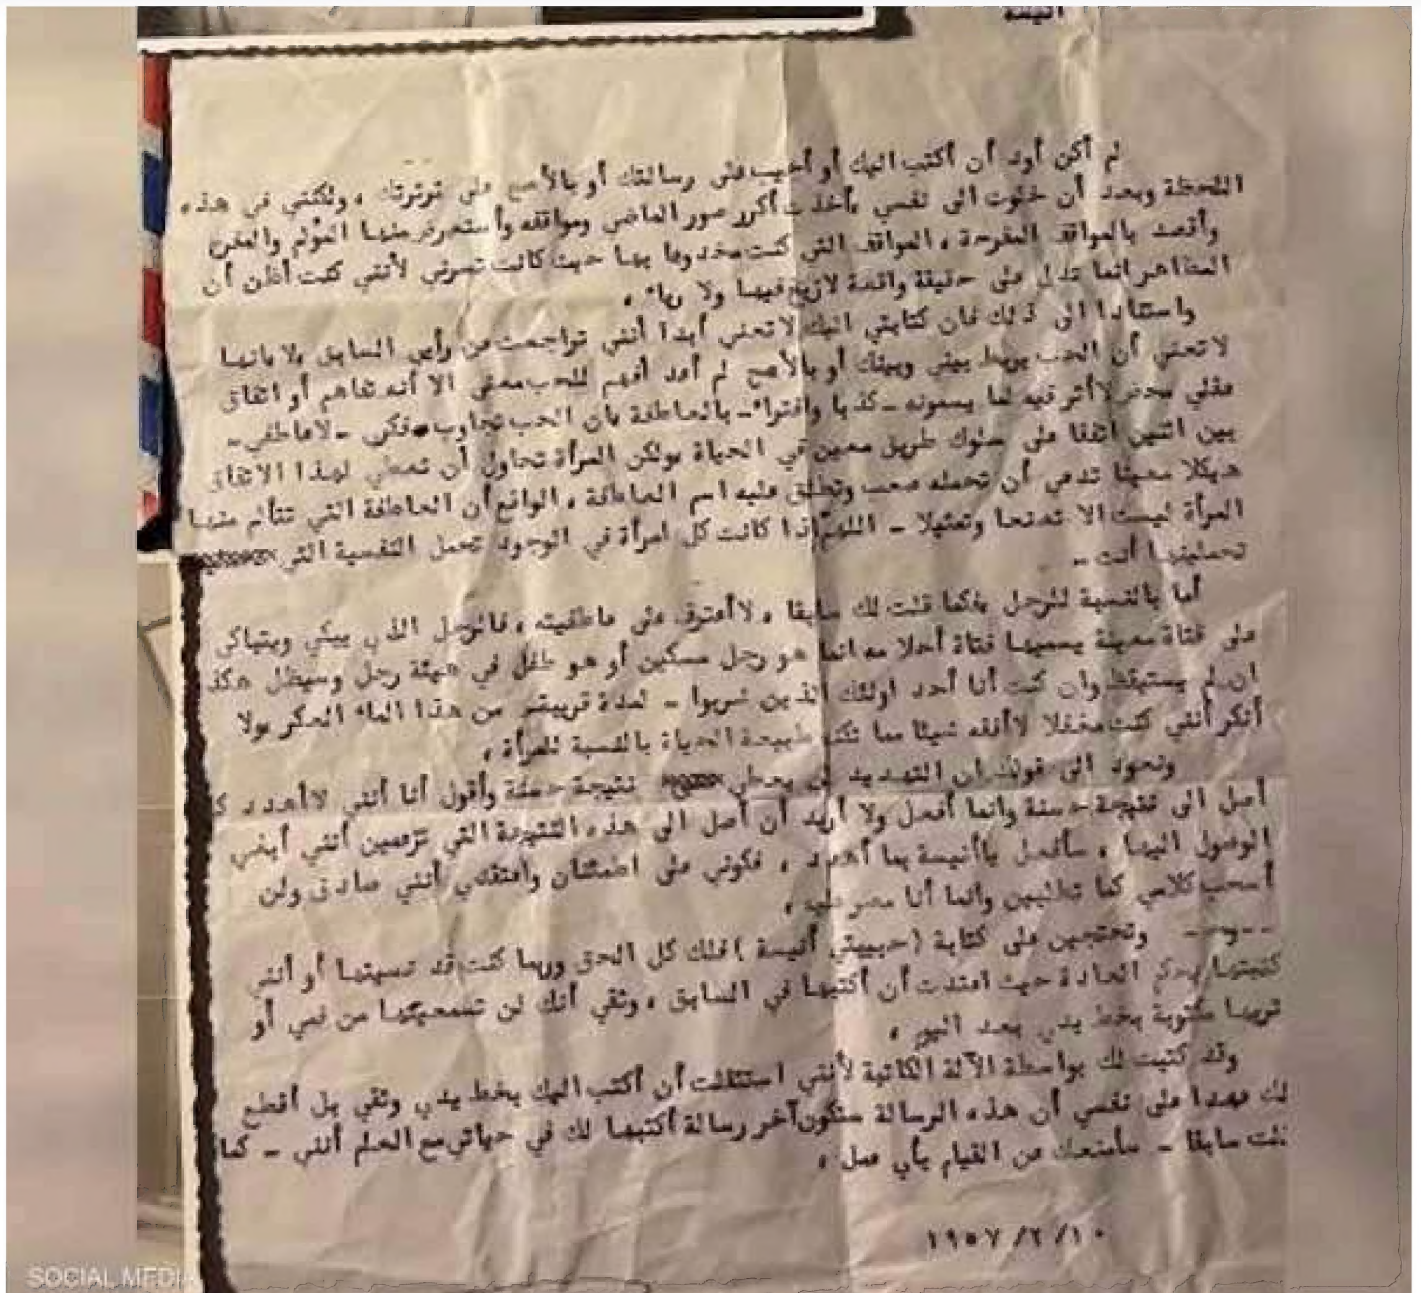 أنيسة
لم أكن أود أن أكتب اليك أو أجيب على رسالتك أو بالأصح على ثرثرتك ، ولكنني في هذه
اللحظة وبعد أن خلوت الى نفسي ،أخذت أكرر صور الماضي ومواقفه وأستعرض منها المؤلم والمفرح
وأقصد بالمواقف المفرحة ، المواقف التي كنت مخدوعا بها حيث كانت تسرني لأنني كنت أظن أن
المظاهر انما تدل على حقيقة واقعة لازيغ فيها ولا رياء .
واستنادا الى ذلك فان كتابتي اليك لا تعني أبدا أنني تراجعت عن رأيي السابق
لا تعني أن الحب يربط بيني وبينك أو بالأصح لم أعد أفهم للحب معنى الا أنه تفاهم أو اتفاق
عقلي محض لاأثر فيه لما يسمونه -كذبا وافتراء- بالعاطفة الحب تجاوب فكري -لاعاطفي-
بين اثنين اتفقا على سلوك طريق معين في الحياة ،ولكن المرأة تحاول أن تعطي لهذا الاتفاق
هيكلا معينا تدعي أن تحمله صعب وتطلق عليه اسم العاطفة ، الواقع أن العاطفة التي تتألم منها
المرأة ليست الا تصنعا وتمثيلا - اللهم اذا كانت كل امرأة في الوجود تحمل النفسية التي
تحملينها أنت -
أما بالنسبة للرجل فكما قلت لك سابقا ، لاأعترف على عاطفيته ، فالرجل الذي يبكي ويتباكى
على فتاة معينة يسميها فتاة أحلامه انما هو رجل مسكين أو هو طفل في هيئة رجل وسيظل هكذا
ان لم يستيقظ وان كنت أنا أحد اولئك الذين شربوا - لمدة قريبة من هذا الماء العكر ،ولا
أنكر أنني كنت مغفلا لاأفقه شيئا مما تكنه طبيعة الحياة بالنسبة للمرأة .
ونعود الى قولك ان التهديد لن يعطي نتيجة حسنة وأقول أنا أنني لاأهدد كي
أصل الى نتيجة حسنة وانما أفعل ولا أريد أن أصل الى هذه النتيجة التي تزعمين أنني أبغي
الوصول اليها ، سأفعل ياأنيسة بما أهدد ، فكوني على اطمئنان واعتقدي أنني صادق ولن
أسحب كلامي كما تطلبين وانما أنا مصر عليه .
وتحتجين على كتابة (حبيبتي أنيسة ) فلك كل الحق وربما كنت قد نسيتها أو أنني
كتبتها بحكم العادة حيث اعتدت أن أكتبها في السابق ، وثقي أنك لن تسمعيها من فمي أو
تريها مكتوبة بخط يدي بعد اليوم .
وقد كتبت لك بواسطة الآلة الكاتبة لأنني استثقلت أن أكتب اليك بخط يدي وثقي بل أقطع
لك عهدا على نفسي أن هذه الرسالة ستكون آخر رسالة أكتبها لك في حياتي مع العلم أنني - كما
قلت سابقا - سأمنعك من القيام بأي عمل .
١٩٥٧/٢/١٠
SOCIAL MEDIA